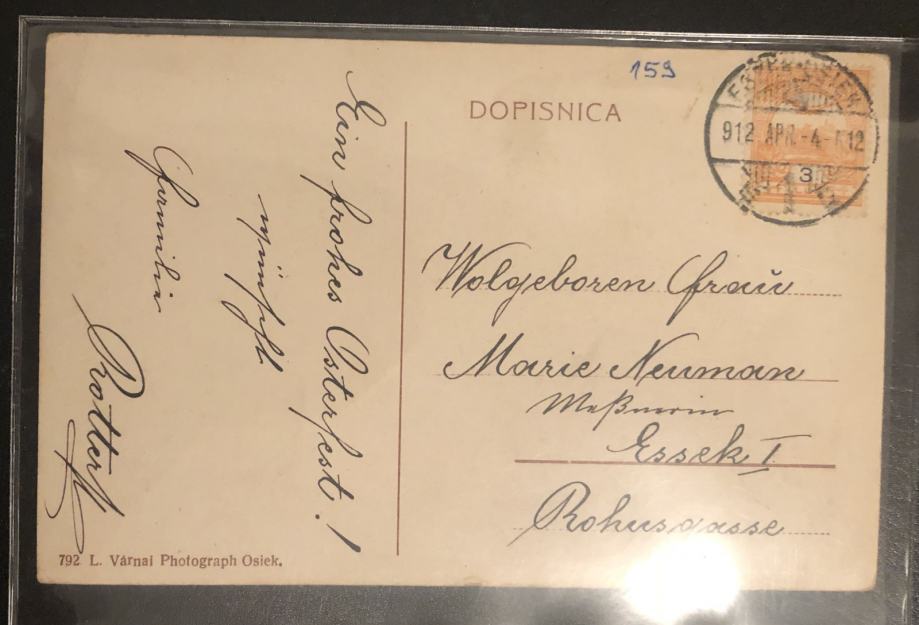 159
DOPISNICA
912 APR.-4
3
Ein frohes Osterfest!
wünscht
Familie
Rottert
Wolgeboren Frau
Marie Neuman
Meßnerin
Essek I
Rohusgasse
792 L. Várnai Photograph Osiek.